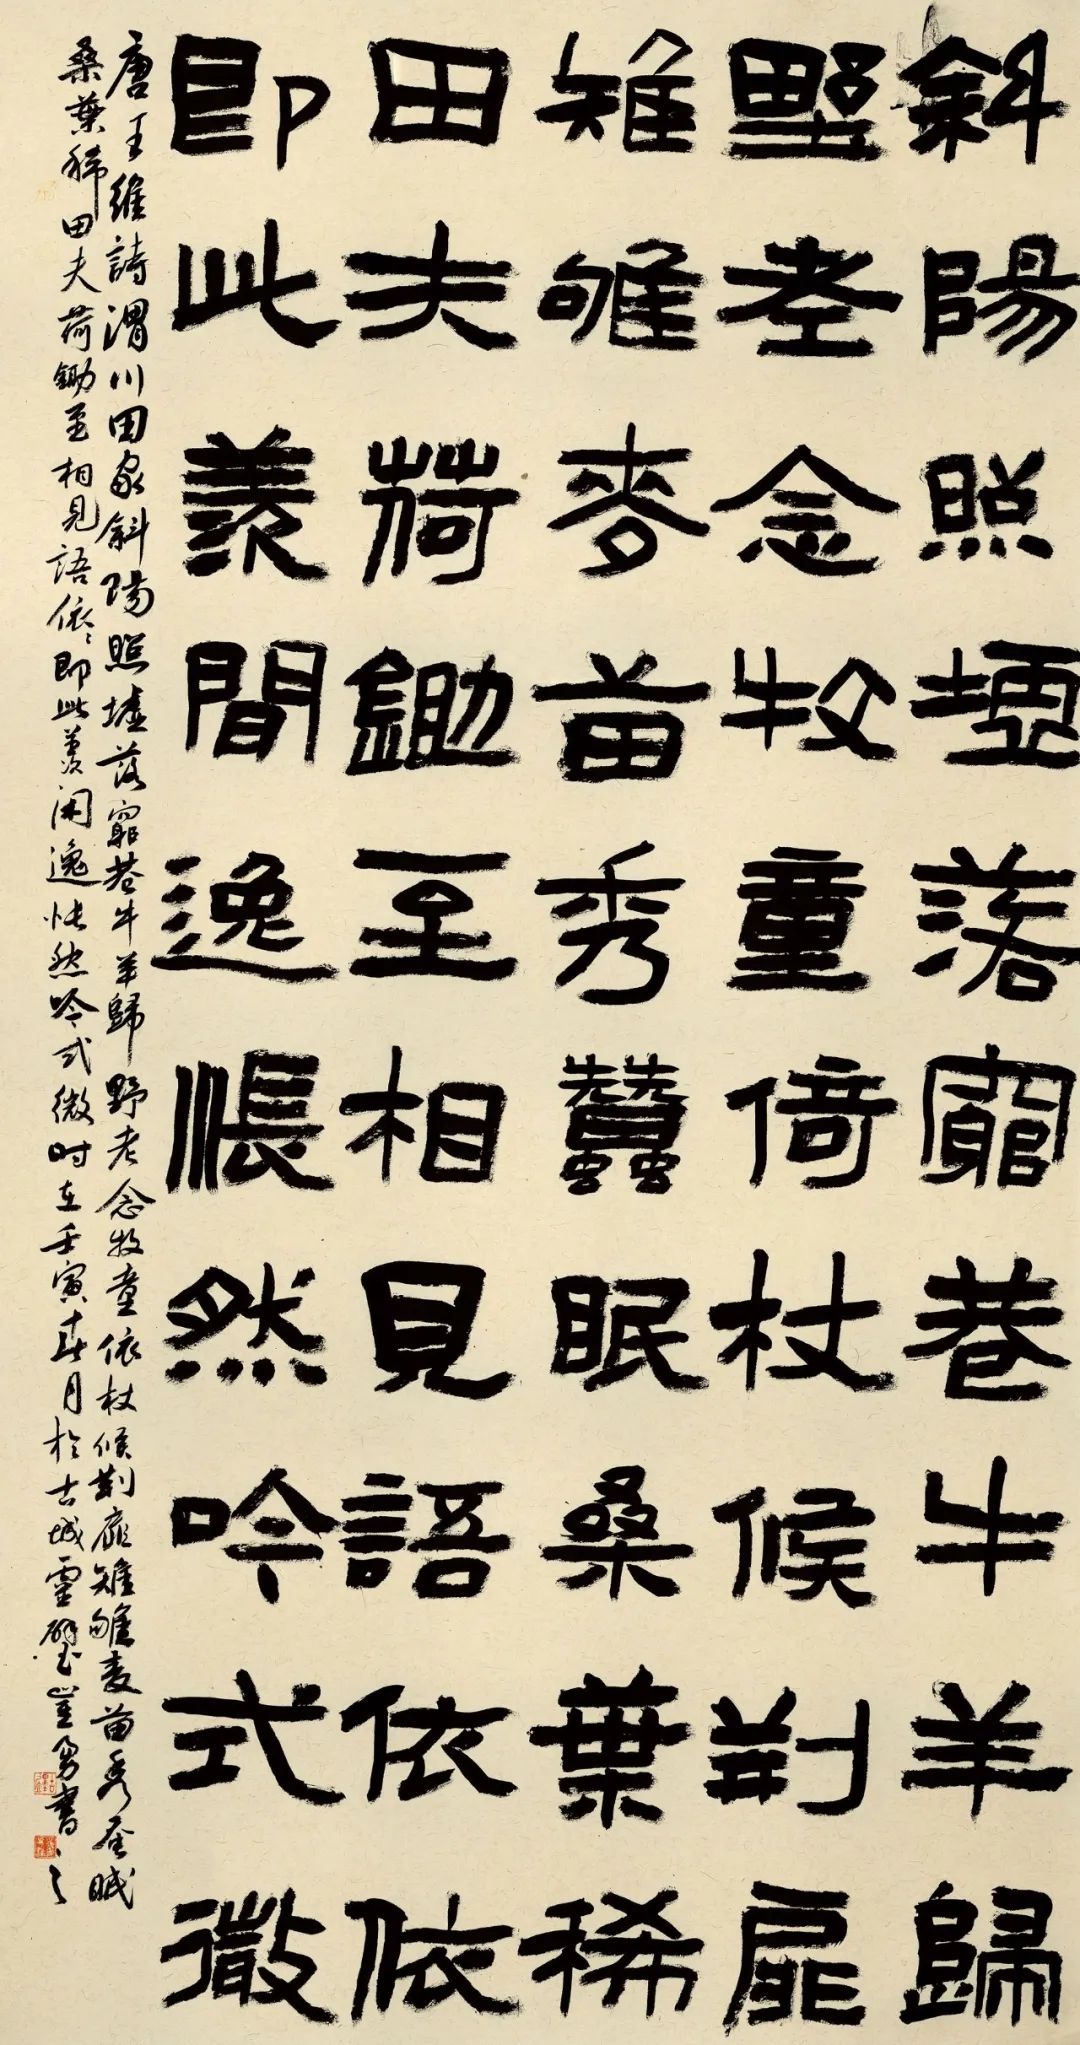 斜陽照墟落窮巷牛羊歸
墅老念牧童倚杖候荆扉
雉雊麥苗秀蠶眠桑葉稀
田夫荷鋤至相見語依依
即此羨間逸悵然吟式微
唐王維詩渭川田家斜陽照墟落窮巷牛羊歸野老念牧童依杖候荆扉雉雊麦苗秀蚕眠
桑葉稀田夫荷鋤至相見語依〻即此羨闲逸悵然吟式微时在壬寅春月於古城靈璧書之